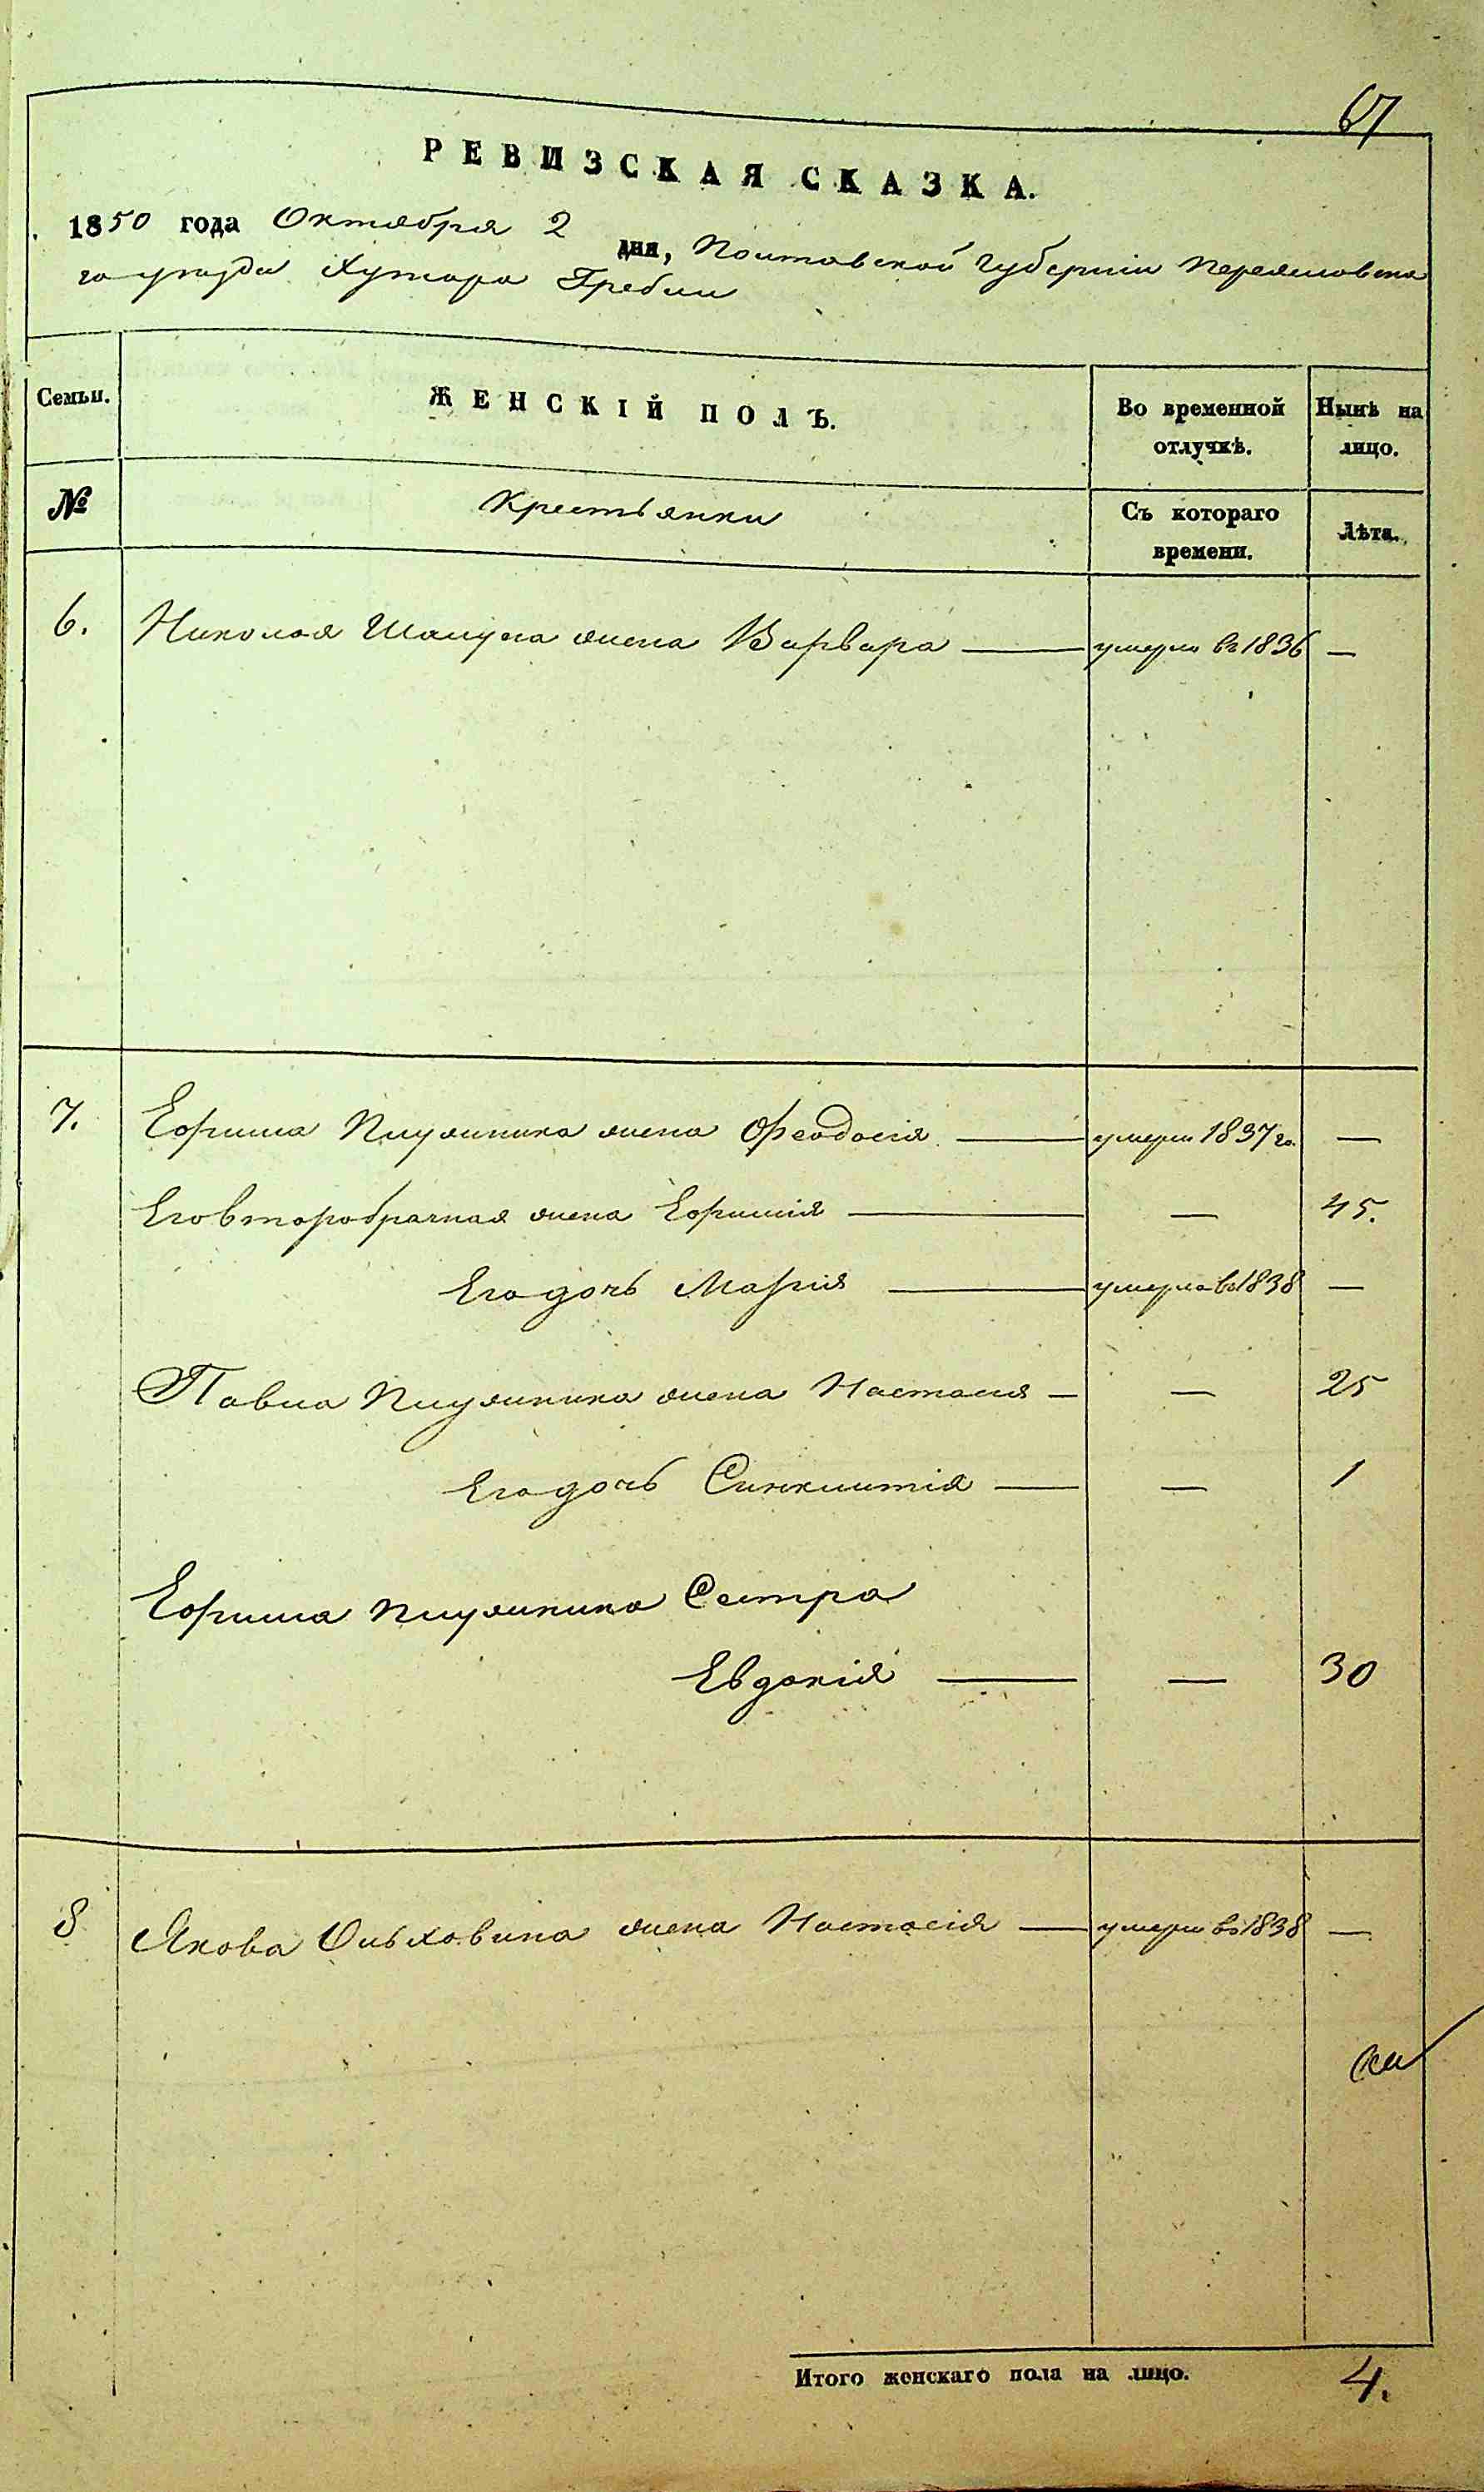 67
РЕВИЗСКАЯ СКАЗКА.
1850 года Октября 2 дня, Полтавской губерніи Переяславска
го уезда Хутора Гребли
Семьи. ЖЕНСКІЙ ПОЛЪ. Во временной отлучкѣ. Нынѣ на лицо.
№ Крестьянки Съ котораго времени. Лѣта.
6. Николая жена Варвара — умерла въ 1836 —
7. Ефима жена Феодосія — умерла 1837 го. —
Его второбрачная жена Ефимія — — 45.
Его дочь Марія — умерла въ 1838 —
Павла жена Настасия — — 25
Его дочь Синклитія — — 1
Ефима Сестра
Евдокія — — 30
8 Якова Ольховика жена Настасія — умерла въ 1838 —
Итого женскаго пола на лицо. 4.